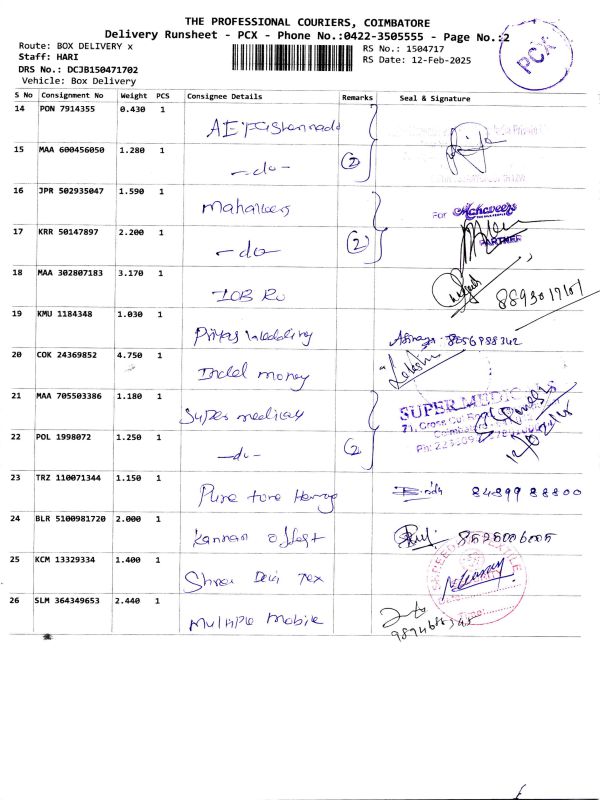 THE PROFESSIONAL COURIERS, COIMBATORE
Delivery Runsheet - PCX - Phone No.:0422-3505555 - Page No.:2
PCX
Route: BOX DELIVERY x
RS No.: 1504717
Staff: HARI
RS Date: 12-Feb-2025
DRS No.: DCJB150471702
Vehicle: Box Delivery
S No Consignment No Weight PCS Consignee Details Remarks Seal & Signature
14 PON 7914355 0.430 1
15 MAA 600456050 1.280 1 -do- 2
16 JPR 502935047 1.590 1 Mahaveers For Mahaveer's
17 KRR 50147897 2.200 1 -do- 2 PARTNER
18 MAA 302807183 3.170 1 IOB RO
19 KMU 1184348 1.030 1 Priyas Wedding 8656988342
20 COK 24369852 4.750 1 Indel money Lakshmi
21 MAA 705503386 1.180 1 Super medicals SUPER MEDIC
22 POL 1998072 1.250 1 -do- 2
23 TRZ 110071344 1.150 1 Pure 84899 88800
24 BLR 5100981720 2.000 1 Kannan offset 8525006005
25 KCM 13329334 1.400 1 Shree Devi Tex
26 SLM 364349653 2.440 1 Multiple Mobile